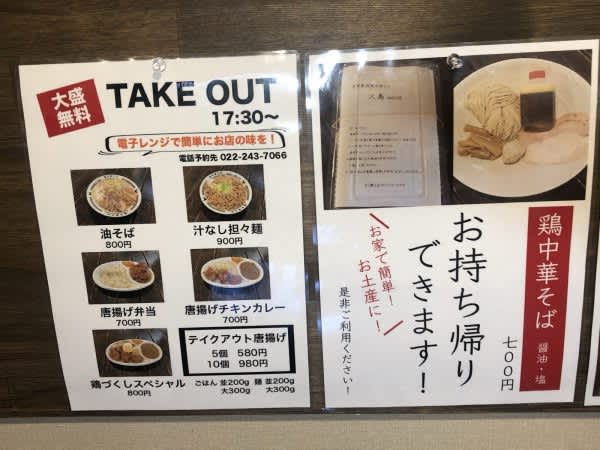 大盛
無料
TAKE OUT
17:30〜
電子レンジで簡単にお店の味を！
電話予約先 022-243-7066
油そば
800円
汁なし担々麺
900円
唐揚げ弁当
700円
唐揚げチキンカレー
700円
鶏づくしスペシャル
800円
テイクアウト唐揚げ
5個 580円
10個 980円
ごはん 並200g 麺 並200g
大300g 大300g
鶏中華そば 醤油・塩
七〇〇円
お持ち帰り
できます！
お家で簡単！
お土産に！
是非ご利用ください！